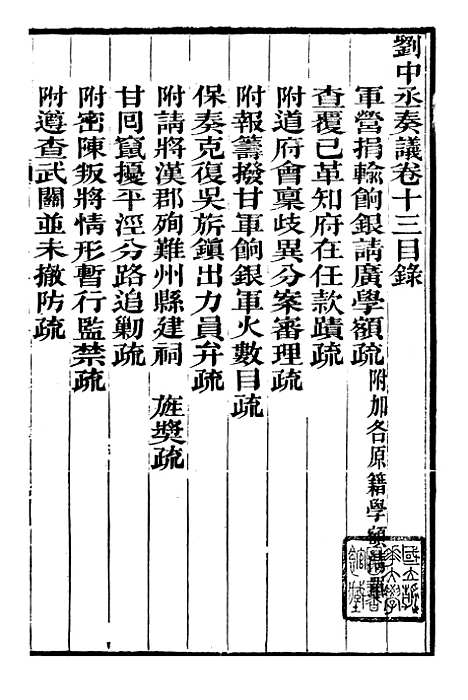 劉中丞奏議卷十三目錄
軍營捐輸餉銀請廣學額疏 附加各原籍學額清單
查覆已革知府在任款蹟疏
附道府會稟歧異分案審理疏
附報籌撥甘軍餉銀軍火數目疏
保奏克復吳旂鎮出力員弁疏
附請將漢郡殉難州縣建祠 旌奬疏
甘回竄擾平涇分路追勦疏
附密陳叛將情形暫行監禁疏
附遵查武關並未撤防疏